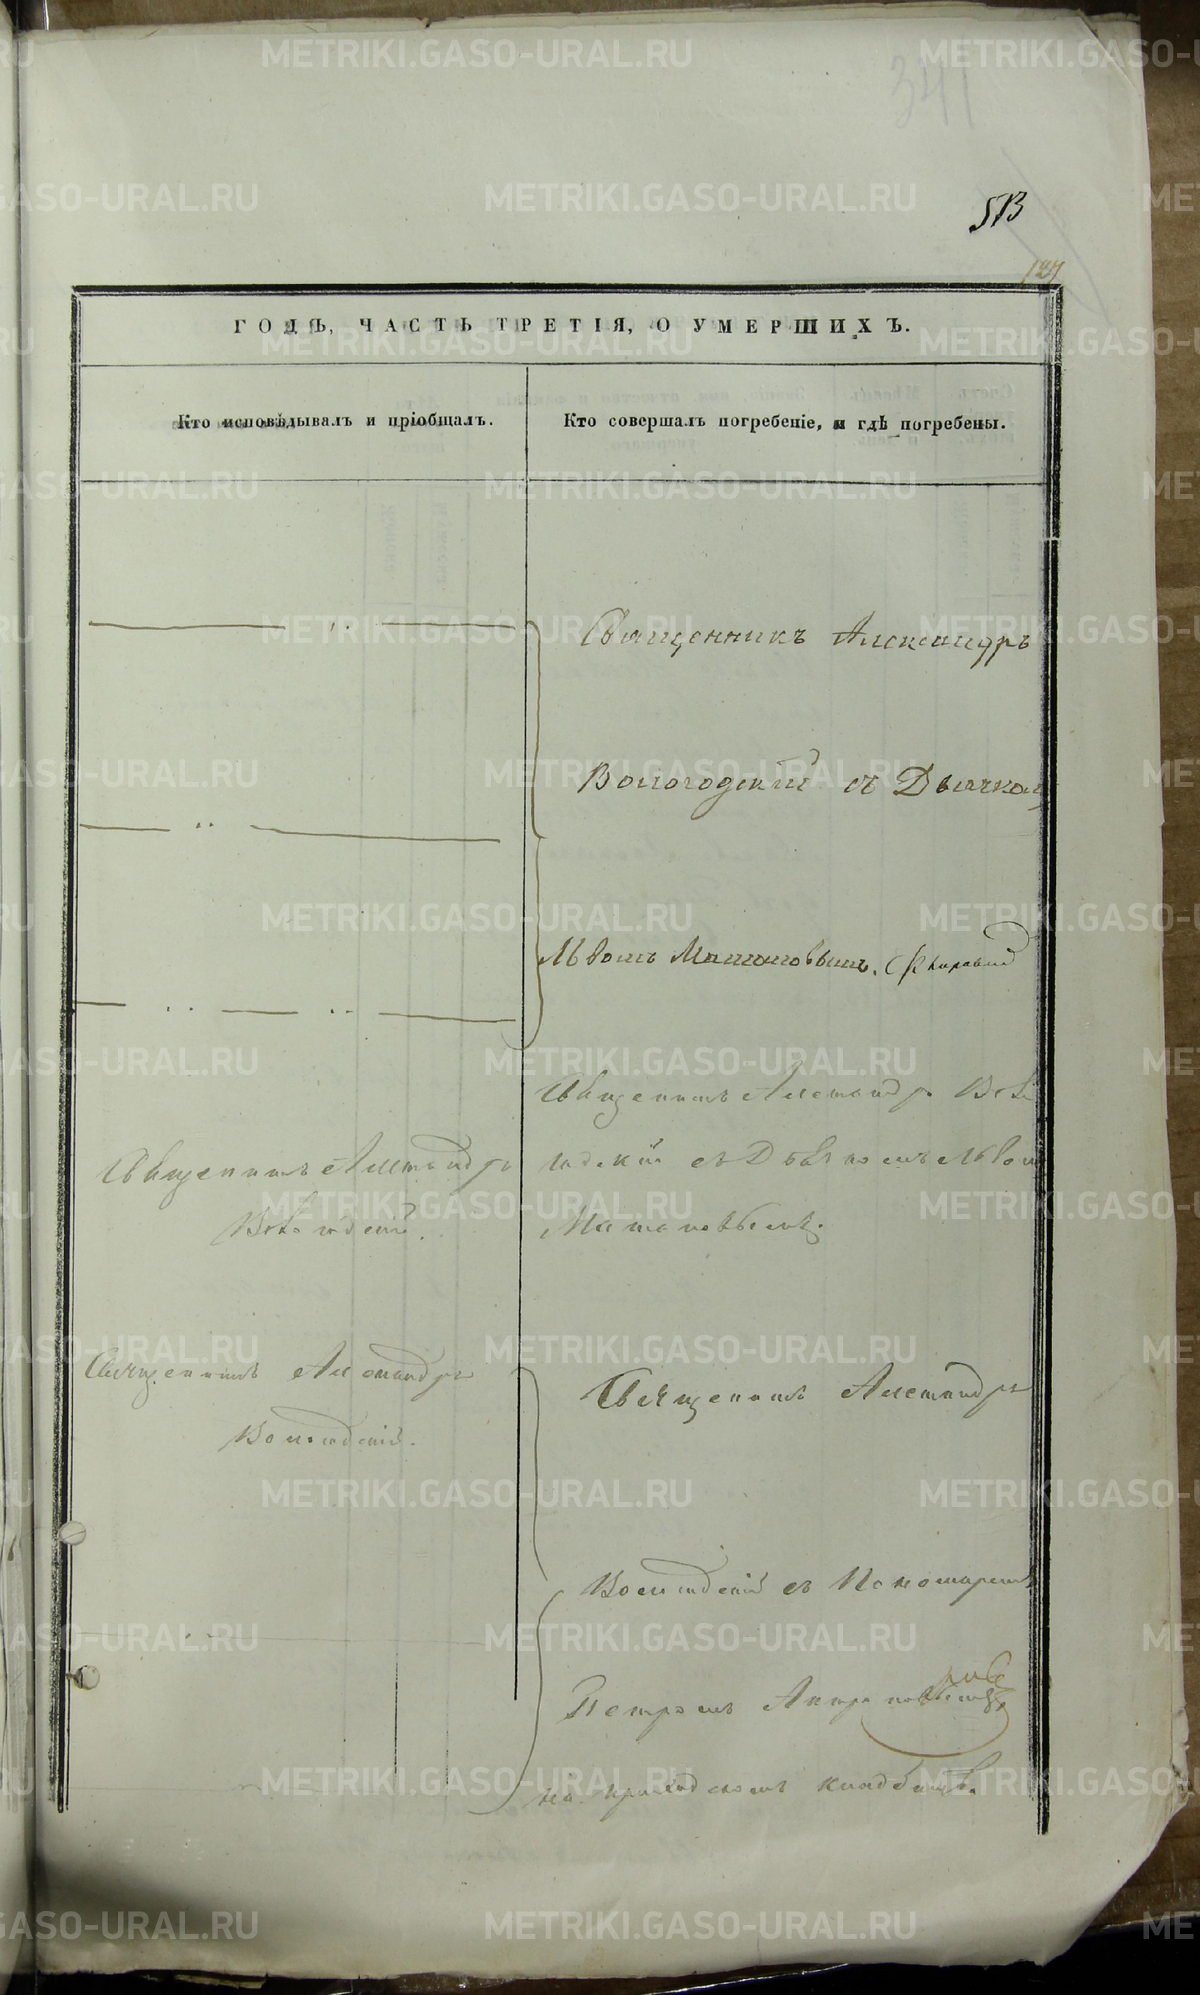 341
513
127
ГОДЪ, ЧАСТЬ ТРЕТІЯ, О УМЕРШИХЪ.
Кто исповѣдывалъ и пріобщалъ.
Кто совершалъ погребеніе, и гдѣ погребены.
Священникъ Александръ
Вологодскій съ Дьячком
Львомъ
Священникъ Александръ
Священникъ Александръ
съ Дьячкомъ Львом
Священникъ Александръ
Вологодскій.
Священникъ Александръ
Вологодскій съ Пономаремъ
Петромъ
на приходскомъ кладбищѣ.
METRIKI.GASO-URAL.RU